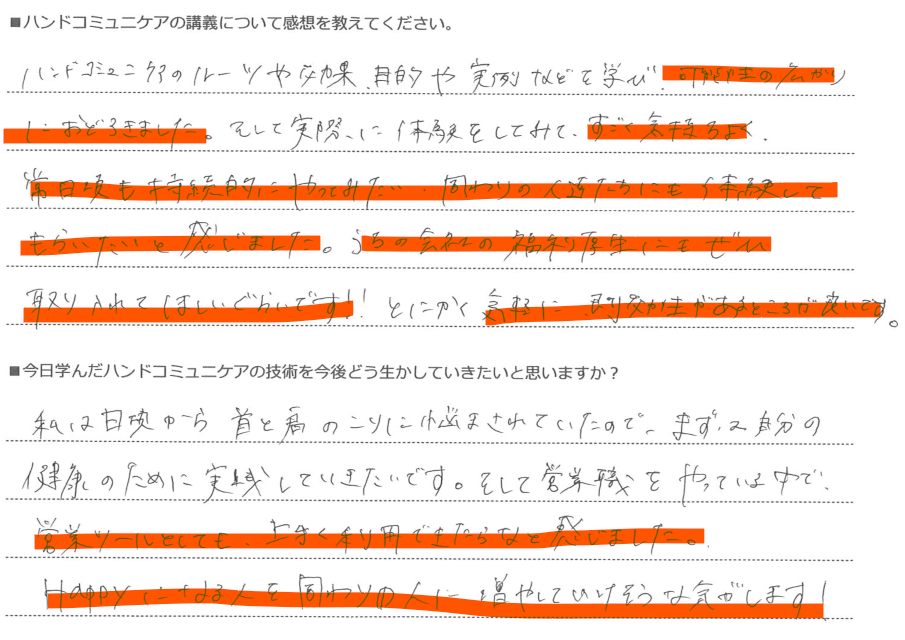 ■ハンドコミュニケアの講義について感想を教えてください。
ハンドコミュニケアのルーツや効果、目的や実例などを学び、可能性の広がり
におどろきました。そして実際に体験をしてみて、すごく気持ちよく、
常日頃も持続的にやってみたい、周わりの人達たちにも体験して
もらいたいと感じました。うちの会社の福利厚生にもぜひ
取り入れてほしいぐらいです!! とにかく気軽に、即効性があるところが良いです。
■今日学んだハンドコミュニケアの技術を今後どう生かしていきたいと思いますか？
私は日頃から首と肩のこりに悩まされていたので、まずは自分の
健康のために実践していきたいです。そして営業職をやっている中で、
営業ツールとしても、上手く利用できたらなと感じました。
Happyになる人を周わりの人に増やしていけそうな気がします!